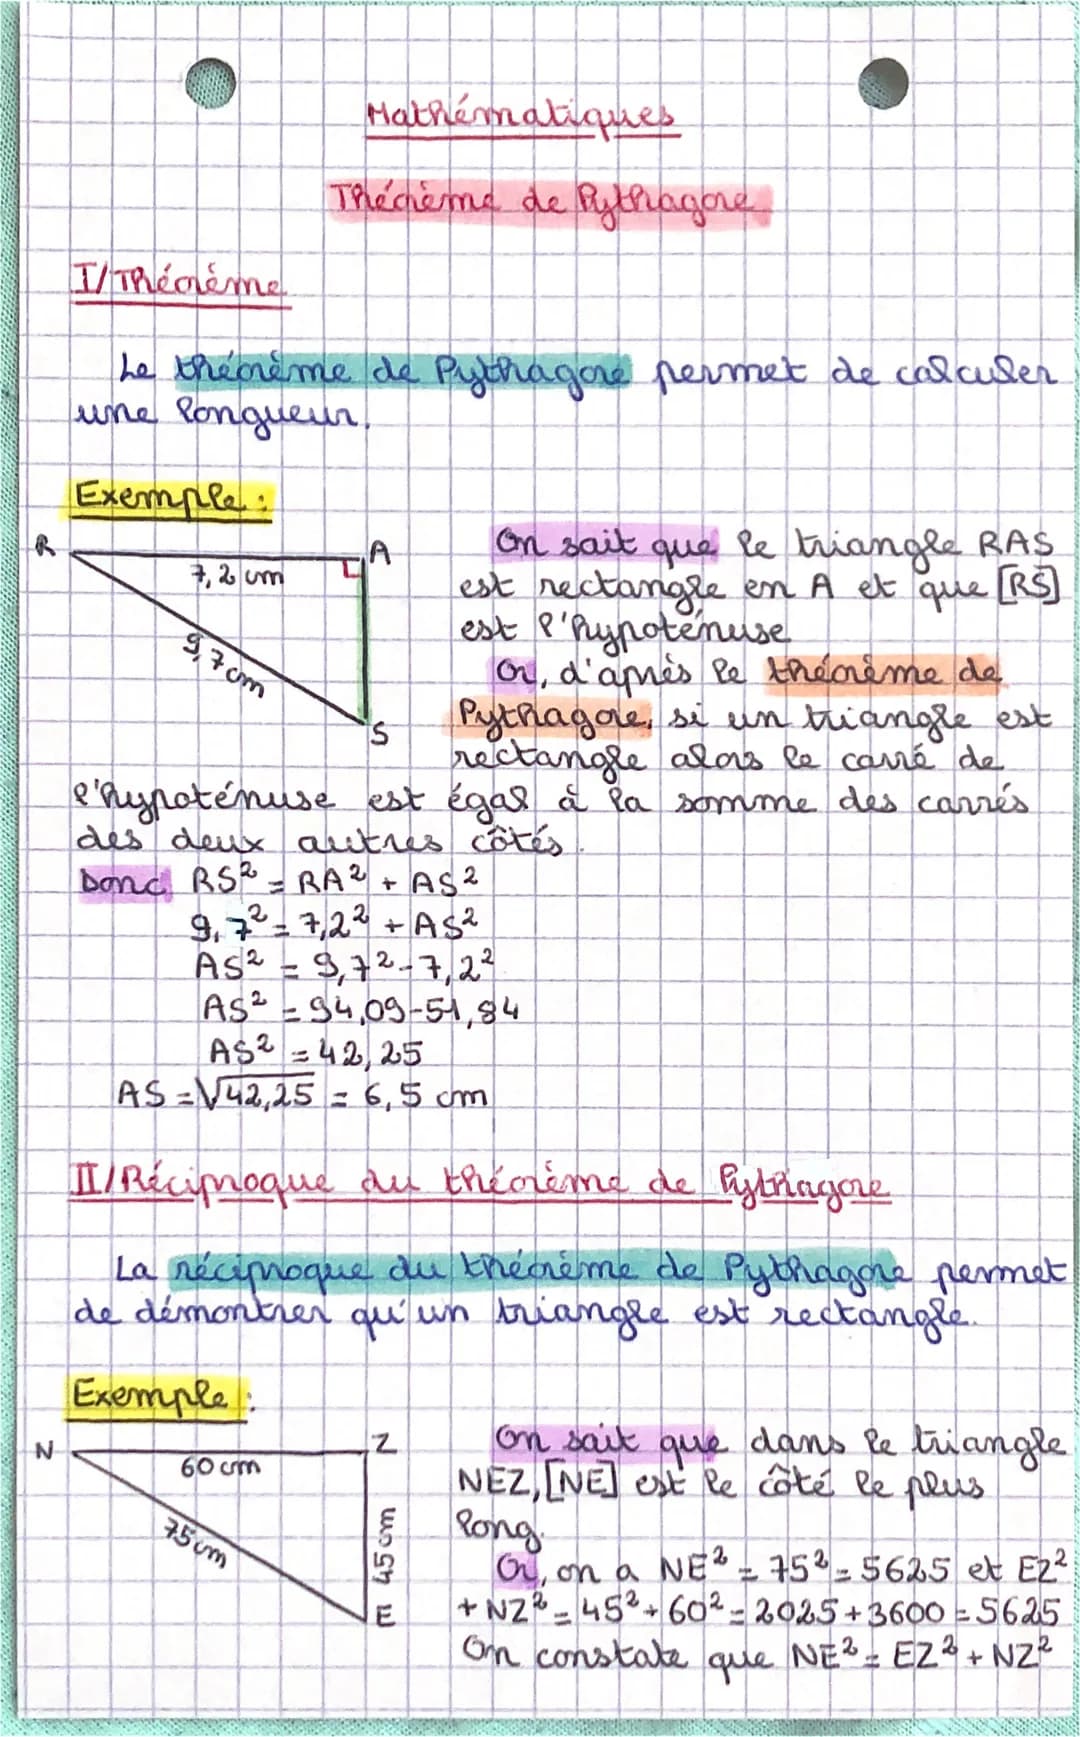 Mathématiques
Théorème de Pythagore
I/Théorème
Le théorème de Pythagore permet de calculer
une longueur.
Exemple :
R
A
7,2 cm
9,7 cm
S
On sait que le triangle RAS
est rectangle en A et que [RS]
est l'hypoténuse
Or, d'après le théorème de
Pythagore, si un triangle est
rectangle alors le carré de
l'hypoténuse est égal à la somme des carrés
des deux autres côtés.
Donc RS² = RA² + AS²
9,7² = 7,2² + AS²
AS² = 9,7² - 7,2²
AS² = 94,09 - 51,84
AS² = 42,25
AS = √42,25 = 6,5 cm
II/Réciproque du théorème de Pythagore
La réciproque du théorème de Pythagore permet
de démontrer qu'un triangle est rectangle.
Exemple :
N
Z
60 cm
75 cm
45 cm
E
On sait que dans le triangle
NEZ, [NE] est le côté le plus
long.
Or, on a NE² = 75² = 5625 et EZ²
+ NZ² = 45² + 60² = 2025 + 3600 = 5625
On constate que NE² = EZ² + NZ²